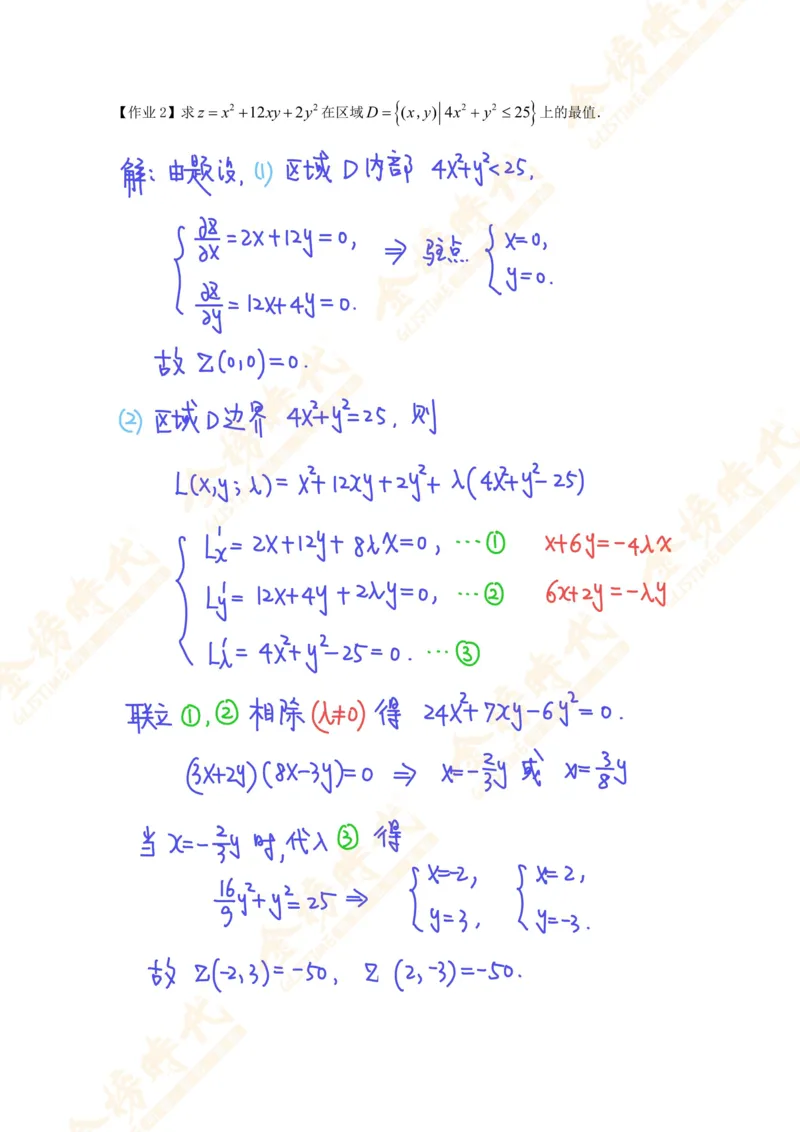 【作业2】求z=x²+12xy+2y²在区域D={(x,y)|4x²+y²≤25}上的最值.
解:由题设,(1)区域D内部 4x²+y²<25,
{∂z/∂x=2x+12y=0, ⇒ 驻点 {x=0,
∂z/∂y=12x+4y=0. y=0.
故 z(0,0)=0.
(2)区域D边界 4x²+y²=25, 则
L(x,y;λ)=x²+12xy+2y²+λ(4x²+y²-25)
{L'x=2x+12y+8λx=0, …① x+6y=-4λx
L'y=12x+4y+2λy=0, …② 6x+2y=-λy
L'λ=4x²+y²-25=0. …③
联立①,②相除(λ≠0)得 24x²+7xy-6y²=0.
(3x+2y)(8x-3y)=0 ⇒ x=-2/3y 或 x=3/8y
当 x=-2/3y 时,代入③得
16/9y²+y²=25 ⇒ {x=-2, {x=2,
y=3, y=-3.
故 z(-2,3)=-50, z(2,-3)=-50.
金榜時代
GLISTIME